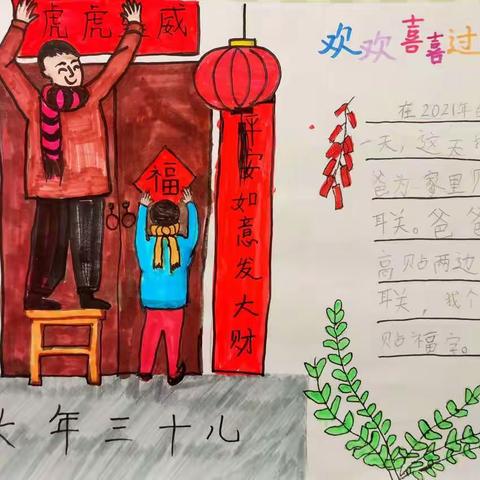 虎虎生威
欢欢喜喜过
福
平安如意发大财
在2021年
一天，这天
爸为家里
联。爸爸
高贴两边
联，我个
贴福字。
年三十儿